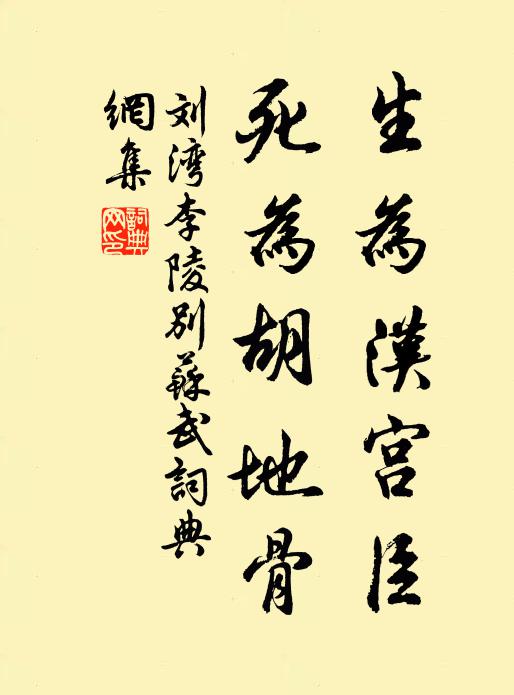 生為漢宮臣
死為胡地骨
刘湾李陵别蘇武詞典
網集
詞典網印